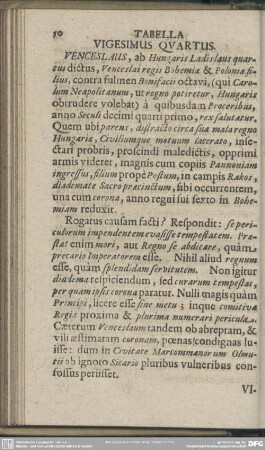 50 TABELLA
VIGESIMUS QVARTUS.
VENCESLAUS, ab Hungaris Ladislaus quar-
tus dictus, Venceslai regis Bohemiæ & Poloniæ fi-
lius, contra fulmen Bonifacii octavi, (qui Caro-
lum Neapolitanum, ut regno potiretur, Hungaris
obtrudere volebat) à quibusdam Proceribus,
anno Seculi decimi quarti primo, rex salutatur.
Quem ubi parens, distracto circa sua mala regno
Hungaria, Civiliumque motuum lacerato, inse-
ctari probris, proscindi maledictis, opprimi
armis videret, magnis cum copiis Pannoniam
ingressus, filium propè Pestum, in campis Rakos,
diademate Sacro præcinctum, sibi occurrentem,
una cum corona, anno regni sui sexto in Bohe-
miam reduxit.
Rogatus causam facti? Respondit: se peri-
culorum impendentem evasisse tempestatem. Præ-
stat enim mori, aut Regno se abdicare, quàm
precario Imperatorem esse. Nihil aliud regnum
esse, quàm splendidam servitutem. Non igitur
diadema respiciendum, sed curarum tempestas,
per quam ipsis corona paratur. Nulli magis quàm
Principi, licere esse sine metu; inque comitiva
Regia proxima & plurima numerari pericula.
Cæterum Venceslaum tandem ob abreptam, &
vili æstimatam coronam, pœnas (condignas) lu-
isse: dum in Civitate Marcommanorum Olmu-
tii ab ignoto Sicario pluribus vulneribus con-
fossus periisset.
VI-